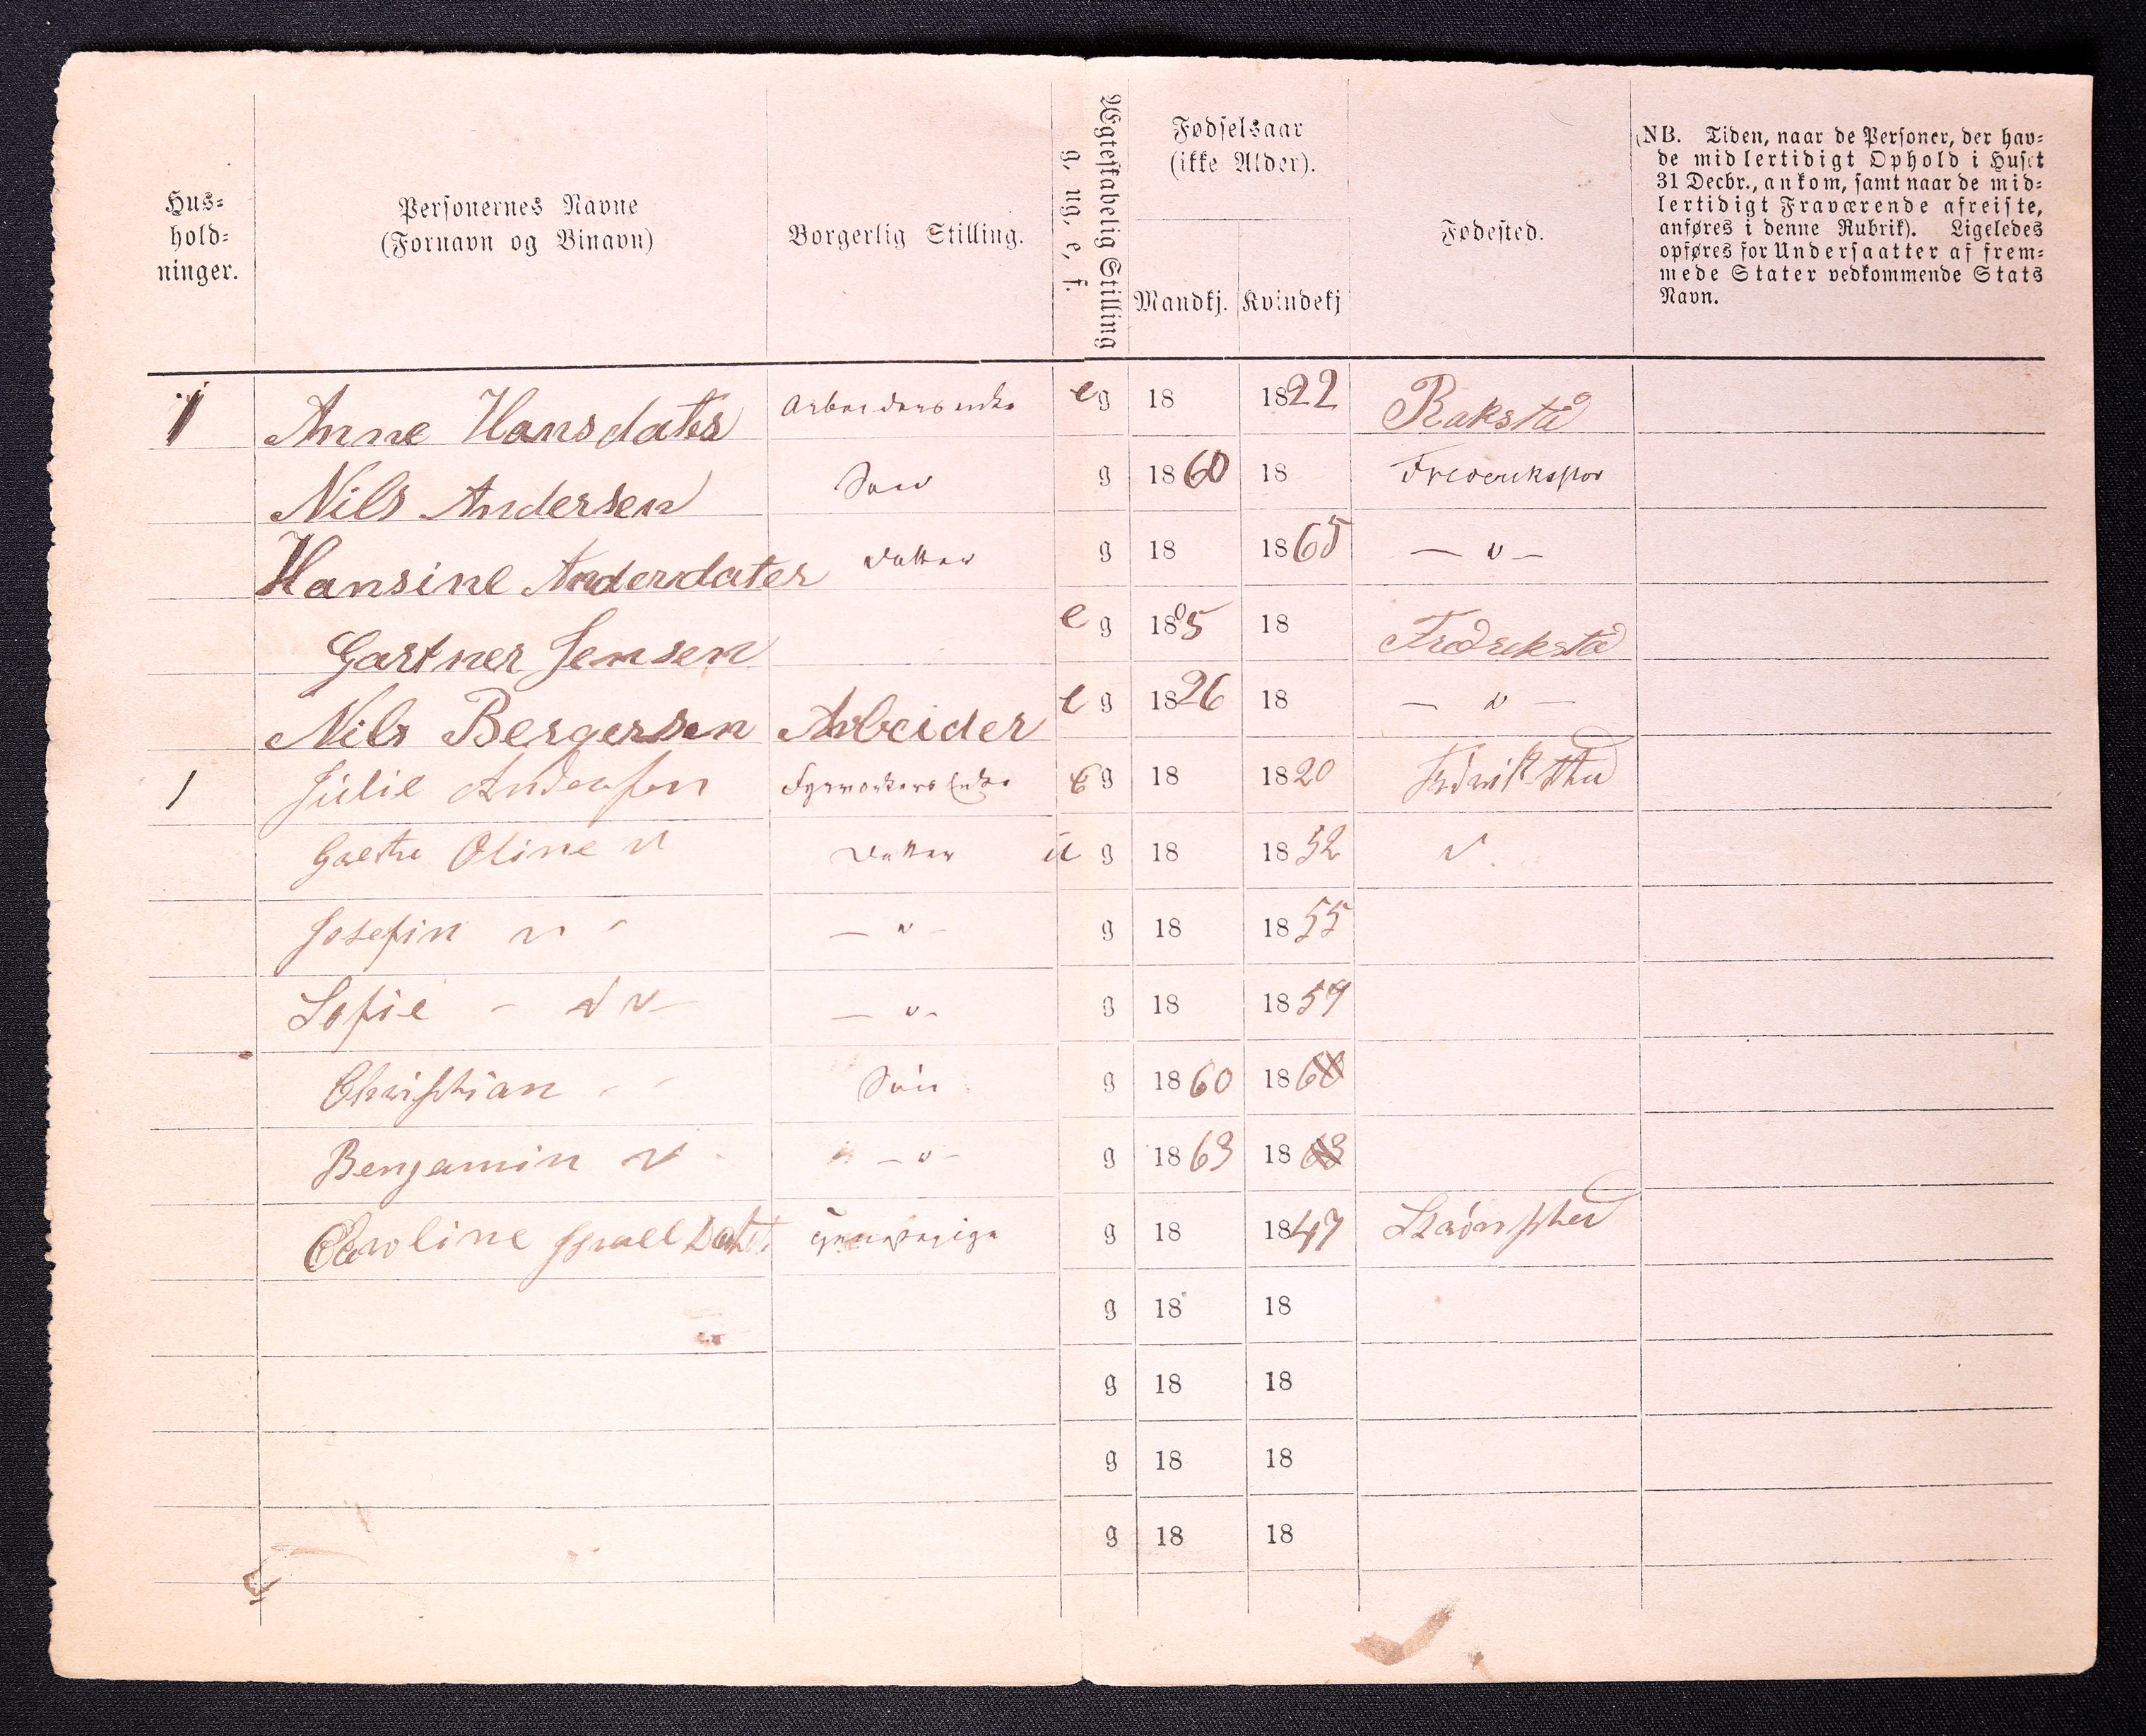 Hus-
hold-
ninger.
Personernes Navne
(Fornavn og Binavn)
Borgerlig Stilling.
Ægteskabelig Stilling
g, ug, e, f.
Fødselsaar
(ikke Alder).
Mandkj. Kvindekj
Fødested.
(NB. Tiden, naar de Personer, der hav-
de midlertidigt Ophold i Huset
31 Decbr., ankom, samt naar de mid-
lertidigt Fraværende afreiste,
anføres i denne Rubrik). Ligeledes
opføres for Undersaatter af frem-
mede Stater vedkommende Stats
Navn.
1 Anne Hansdater Arbeidersenke e g 18 1822 Rakstad
Nils Andersen Søn g 1860 18
Hansine Andersdater Datter g 18 1865 — " —
Gartner Jensen e g 18 18 Fredrekstad
Nils Bergersen Arbeider e g 1826 18 — " —
1 Julie Andersen Enke E g 18 1820
Oline " Datter u g 18 1852 "
Josefin " - — " — g 18 1855
Sofie - " " — " — g 18 1859
Christian - - Søn g 1860 1860
Benjamin " - — " — g 1863 1863
Caroline Israels Datter g 18 1847
g 18 18
g 18 18
g 18 18
g 18 18